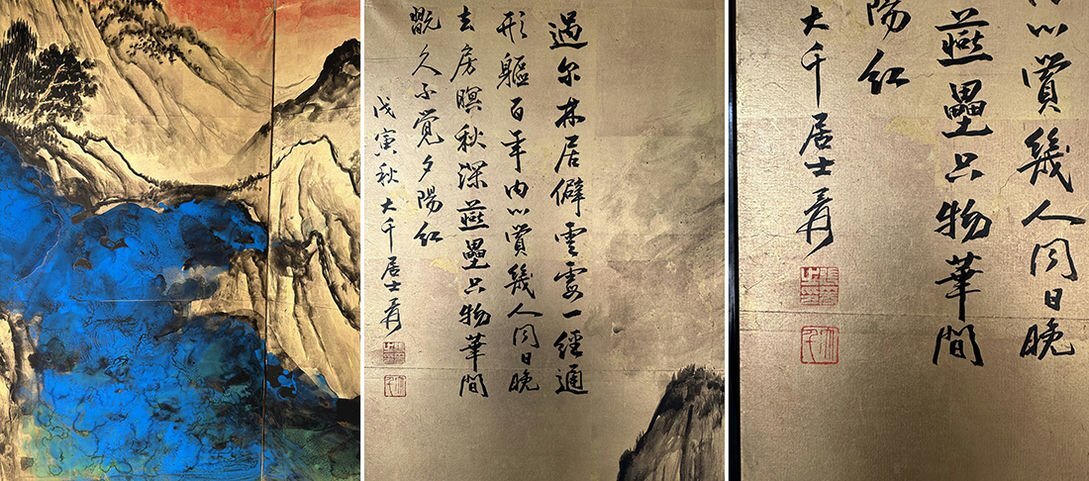 過尔林居僻雲霞一經通
形軀百年内心賞幾人同日晚
去房暝秋深燕壘只物華間
翫久不覺夕陽红
戊寅秋大千居士爰
心賞幾人同日晚
燕壘只物華間
陽红
大千居士爰